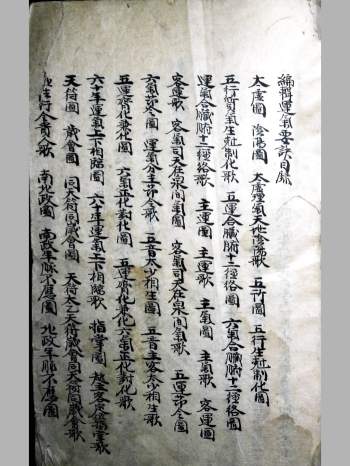 編輯運氣要訣目錄
太虛圖 陰陽圖 太虛理氣天地陰陽歌 五行圖 五行生尅制化圖
五行質氣生尅制化歌 五運合臟腑十二經絡圖 六氣合臟腑十二經絡圖
運氣合臟腑十二經絡歌 主運圖 主運歌 主氣圖 主氣歌 客運圖
客運歌 客氣司天在泉間氣圖 客氣司天在泉間氣歌 五運節令圖
六氣節令圖 運氣分主節令歌 五音太少相生圖 五音主客太少相生歌
五運齊化兼化圖 六氣正化對化圖 五運齊化兼化六氣正化對化歌
六十年運氣上下相臨圖 六十年運氣上下相臨歌 指掌圖 起主客定位指掌歌
天符圖 歲會圖 同天符同歲會圖 天符太乙天符歲會同天符同歲會歌
南北政圖 南政年脉不應圖 北政年脉不應圖